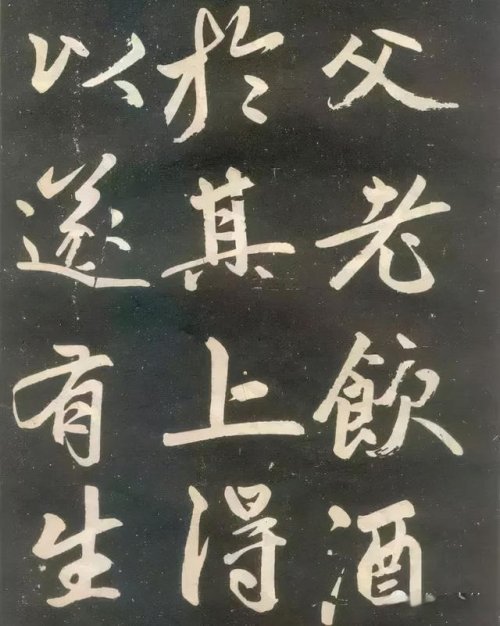 父老飲酒
於其上得
以遂有生